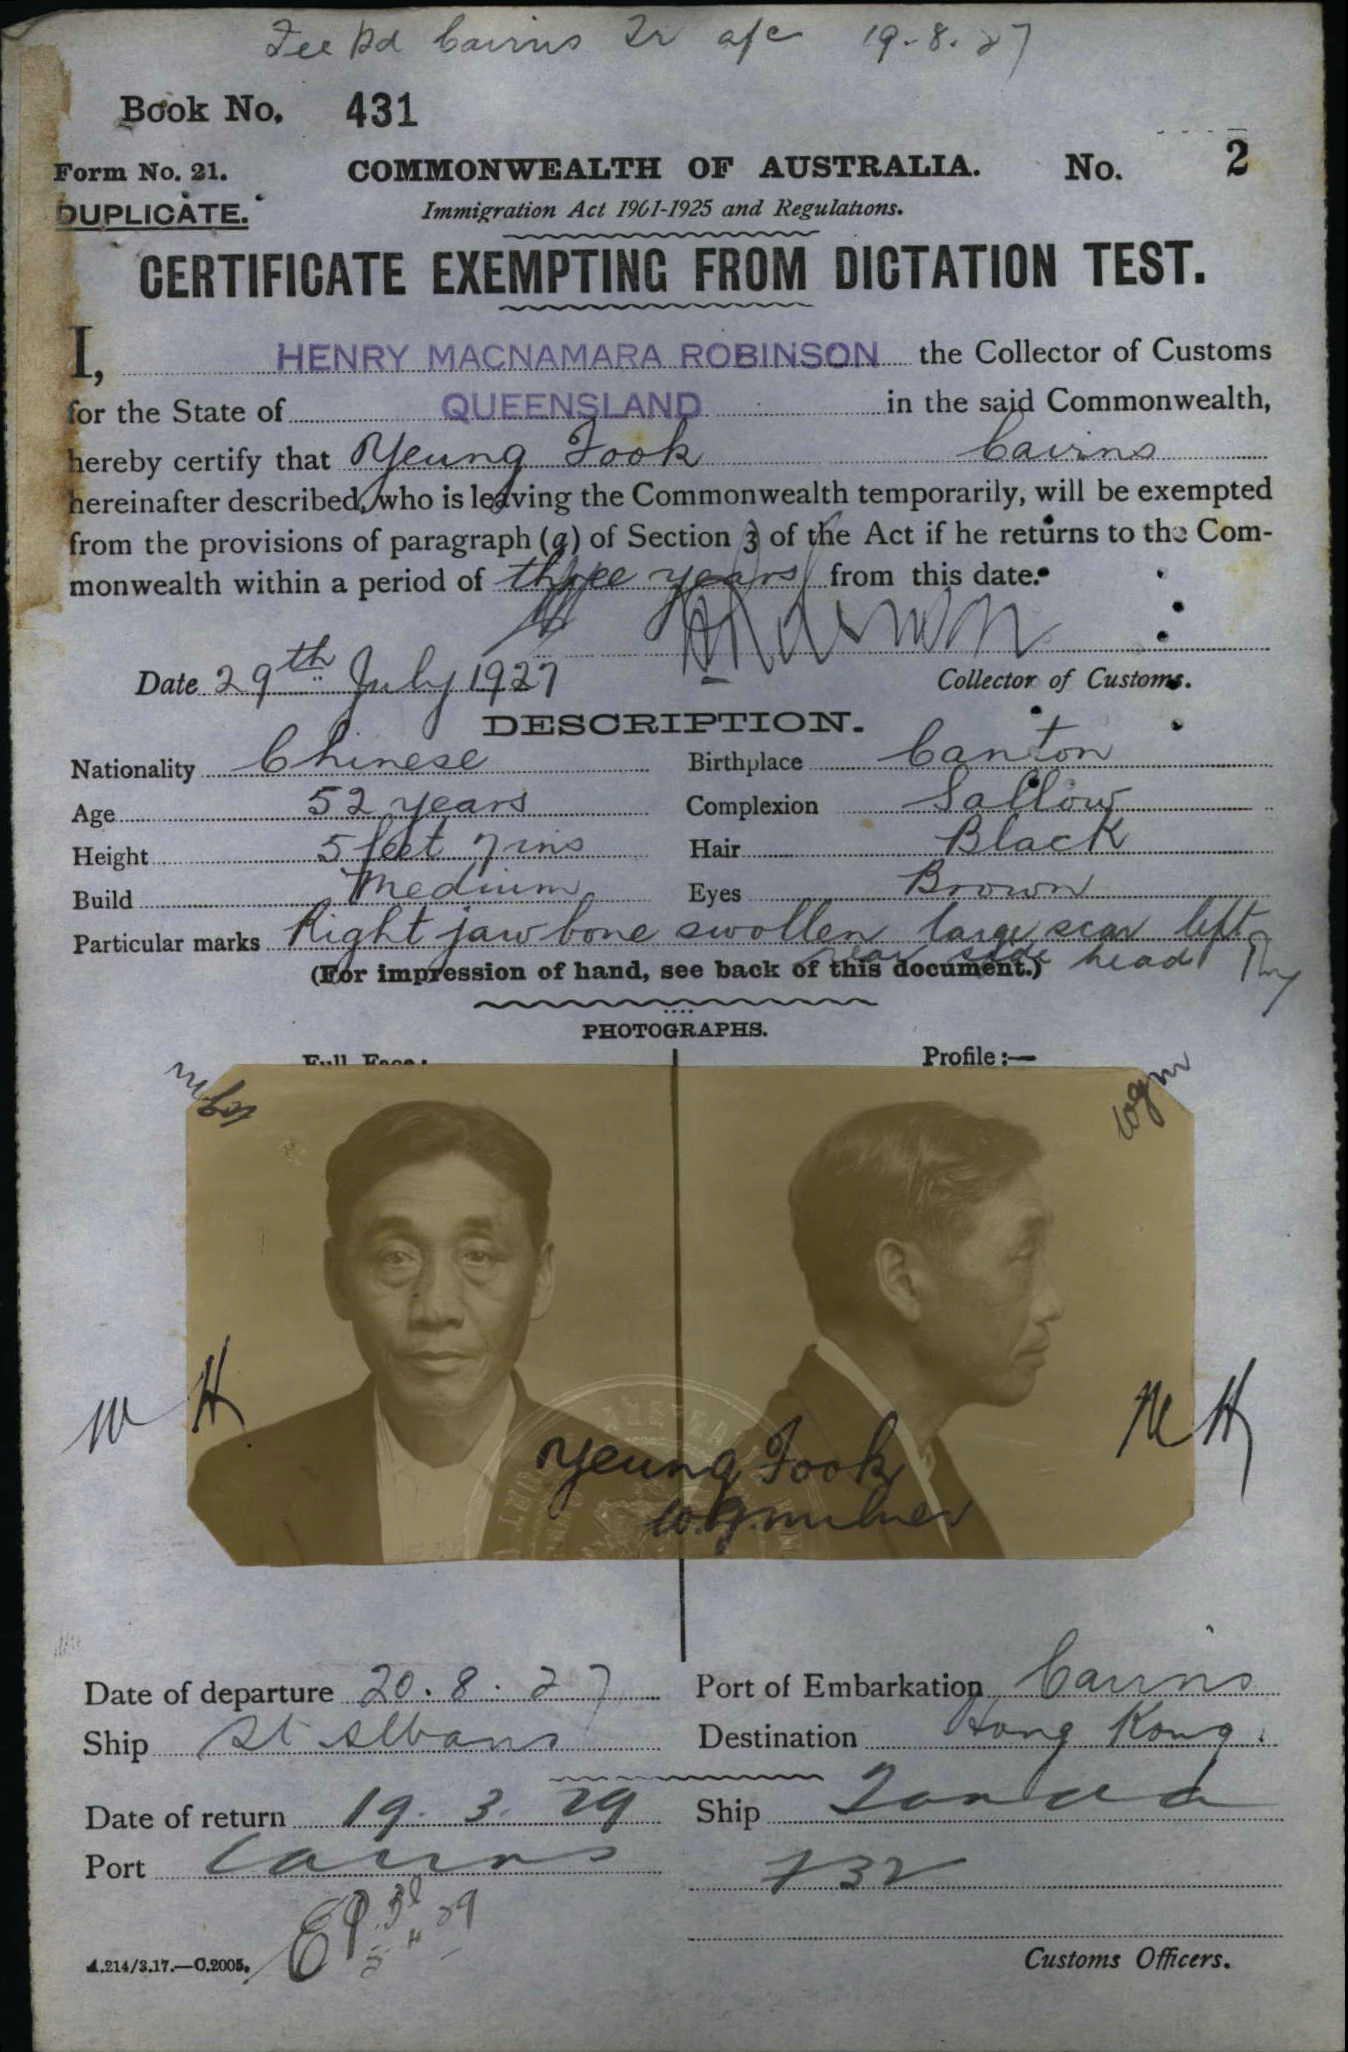 Fee Pd Cairns Tr a/c 19.8.27
Book No. 431
Form No. 21. COMMONWEALTH OF AUSTRALIA. No. 2
DUPLICATE. Immigration Act 1901-1925 and Regulations.
CERTIFICATE EXEMPTING FROM DICTATION TEST.
I, HENRY MACNAMARA ROBINSON the Collector of Customs
for the State of QUEENSLAND in the said Commonwealth,
hereby certify that Yeung Fook Cairns
hereinafter described, who is leaving the Commonwealth temporarily, will be exempted
from the provisions of paragraph (a) of Section 3 of the Act if he returns to the Com-
monwealth within a period of three years from this date.
Date 29th July 1927 Collector of Customs.
DESCRIPTION.
Nationality Chinese Birthplace Canton
Age 52 years Complexion Sallow
Height 5 feet 7 ins Hair Black
Build Medium Eyes Brown
Particular marks Right jaw bone swollen large scar left
rear side head
(For impression of hand, see back of this document.)
PHOTOGRAPHS.
Full Face: Profile:—
wgm
W H M H
Yeung Fook
W.G. Milner
Date of departure 20.8.27 Port of Embarkation Cairns
Ship St Albans Destination Hong Kong.
Date of return 19.3.29 Ship Tanda
Port Cairns
A.214/3.17.—C.2005. Customs Officers.